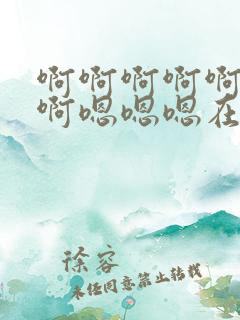 啊啊啊啊啊
啊嗯嗯嗯在
徐容
未经同意禁止转载